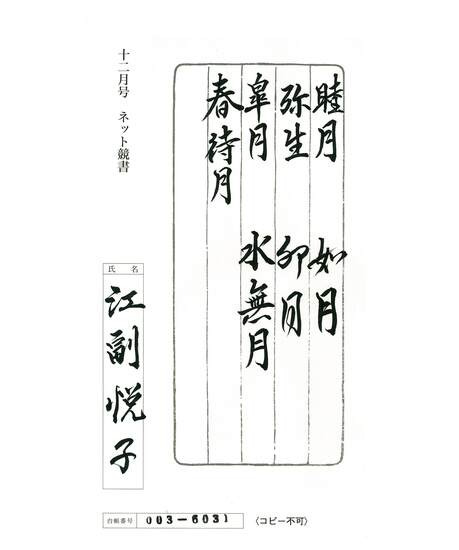 睦月 如月
弥生 卯月
皐月 水無月
春待月
十二月号 ネット競書
氏名
江副悦子
台帳番号 003-6031
(コピー不可)